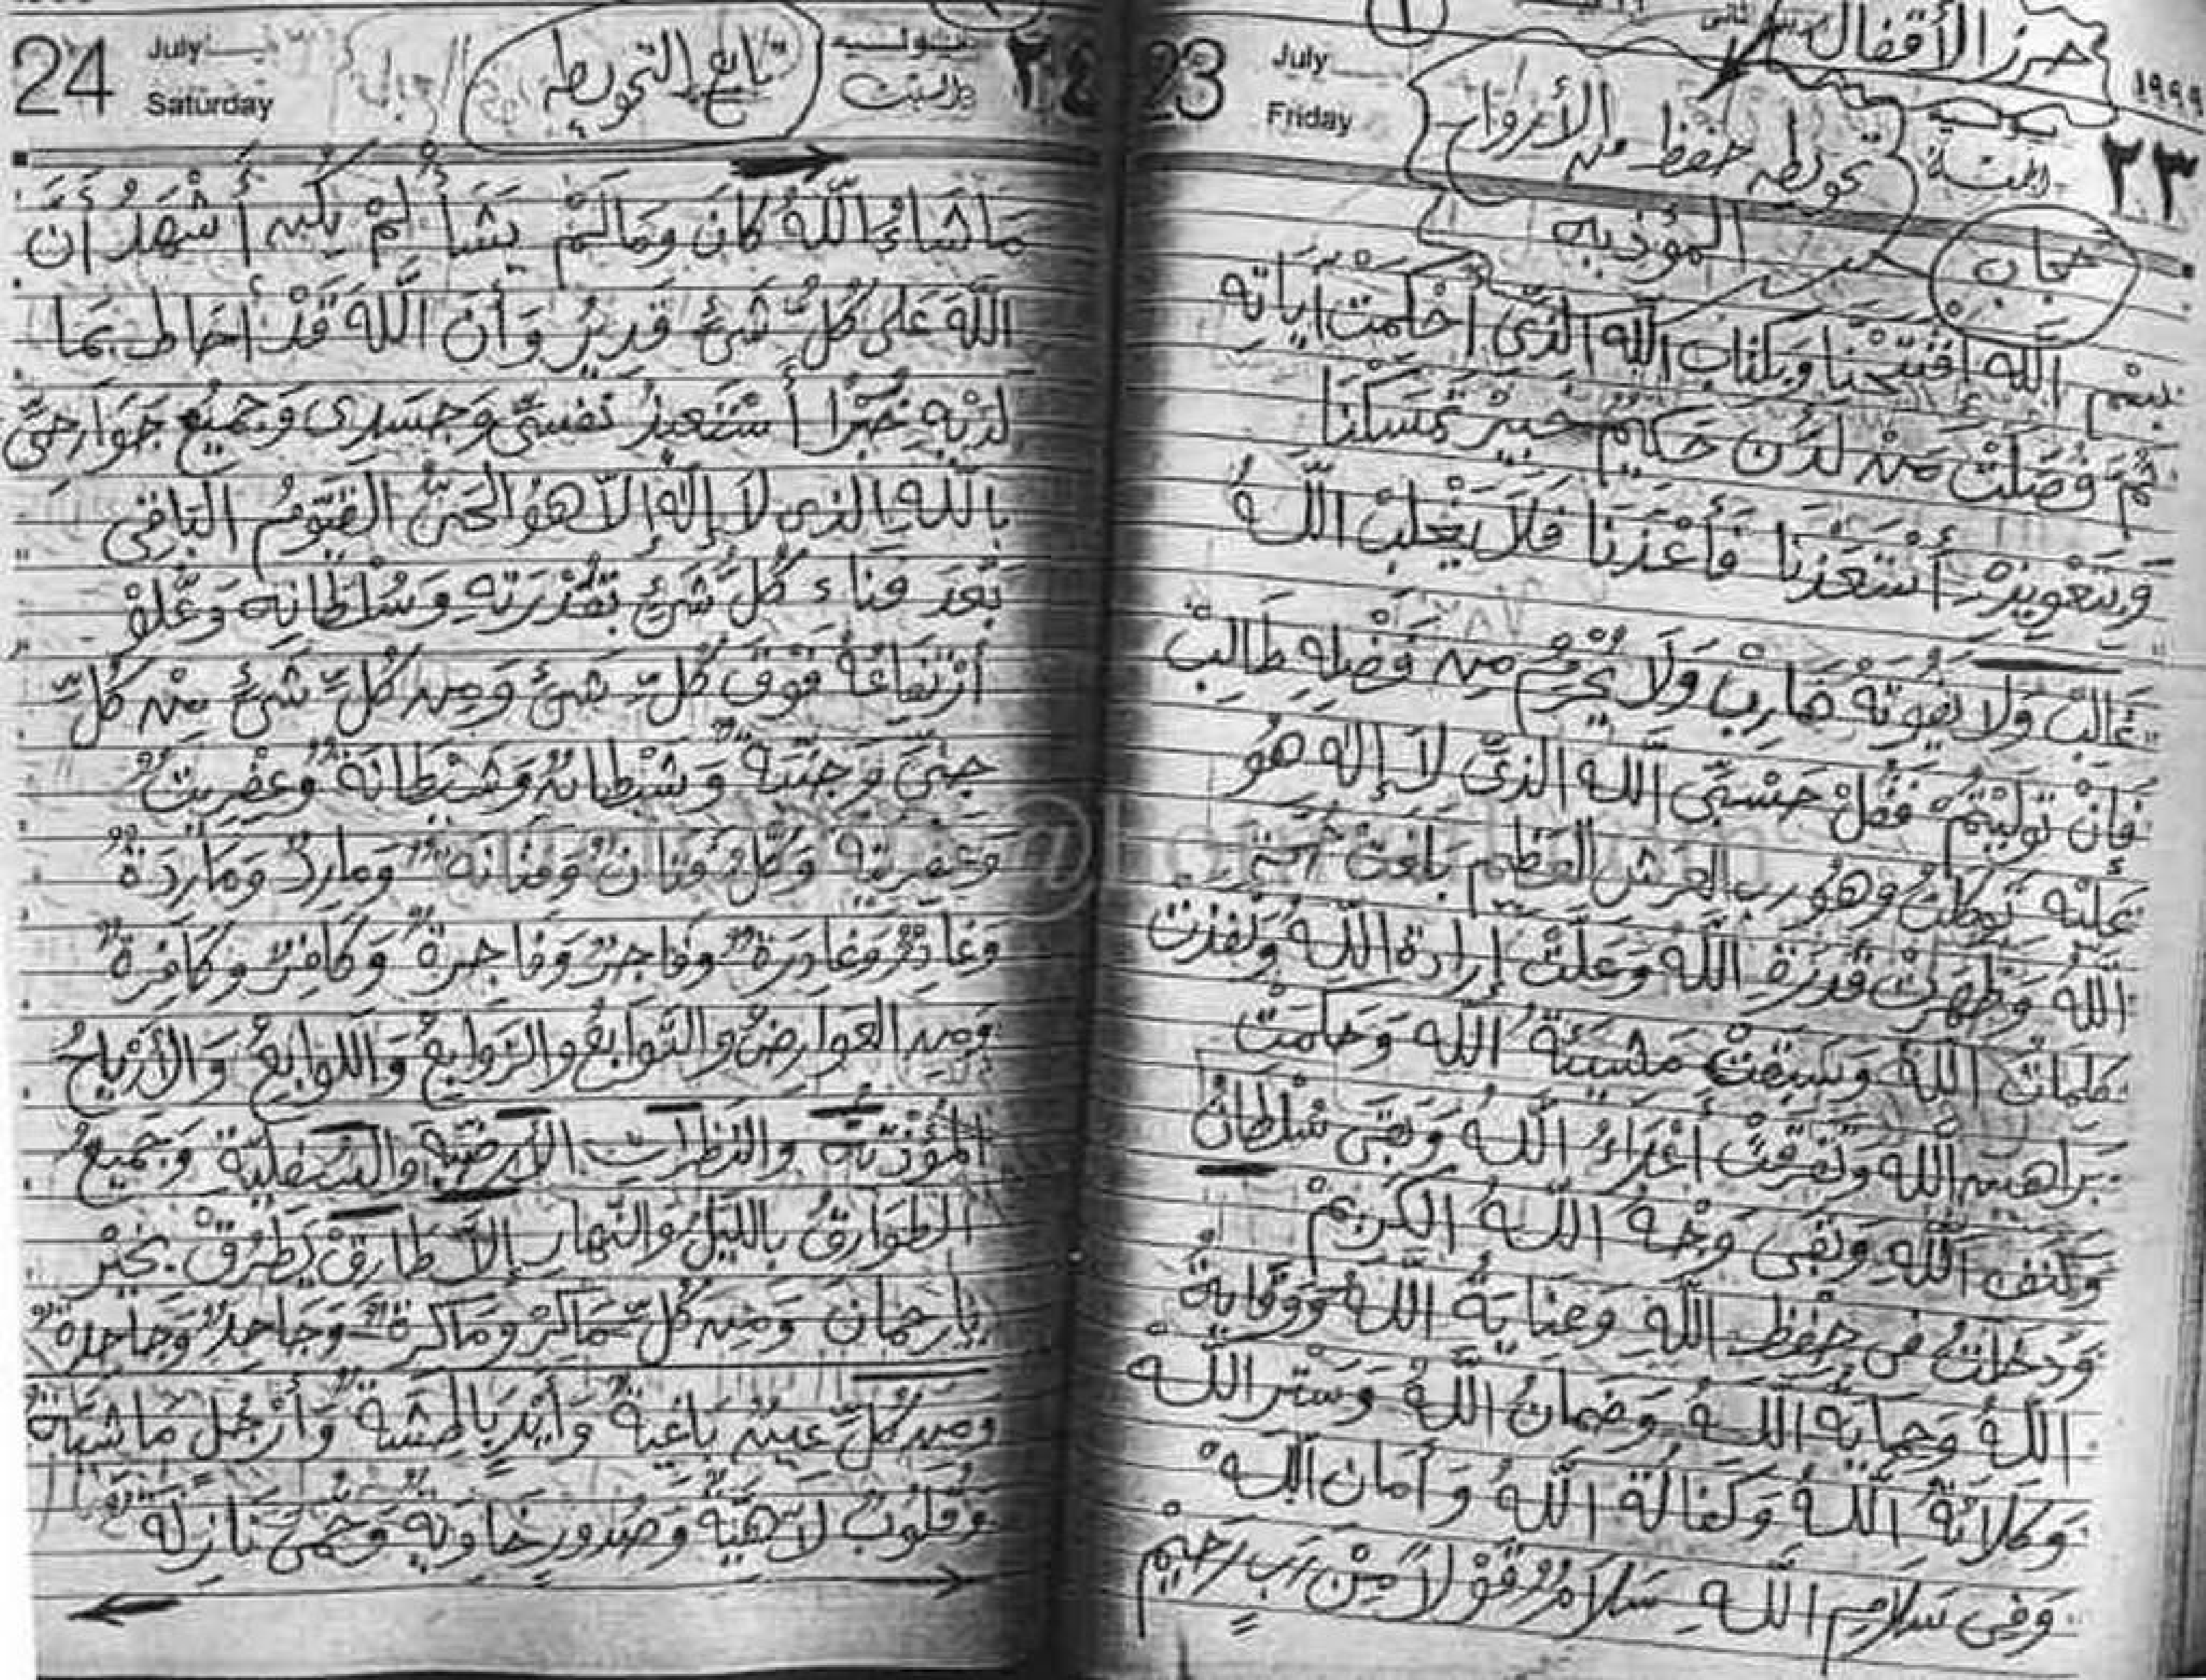 حرز الأقفال
١٩٩٩
23
July
Friday
٢٣
يوليه
الجمعة
تحويطه حفظ من الأرواح
المؤذيه
حجاب
بسْم اللَّه افْتتَحْنا وبكتاب اللَّه الذّى أحْكمتْ اياته
ثمَّ فُصّلَتْ منْ لَدُن حَكيمُ خبيرْ تمَسكْنَا
وَبتَعْويذهْ أسْتَعَذنَا فأعْذنَا فلا يَغْلبْ اللَّهُ
غالبّ وَلا يَفوتهُ هَاربّ وَلَا يُحْرمُ مِن فَضْله طَالبْ
فَإنْ تَولّيْتمُ فقُلْ حَسْبىّ اللَّه الذىّ لا إله هوُ
عَليْه تَوكلتُ وهوُ رب العرْش العَظيم بَلغتْ
اللَّه وَظهرتْ قُدرَة اللَّه وَعَلتْ إرادةْ اللَّه ونَفذتْ
كلماتُ اللَّهُ وَسَبقتْ مَشيئةُ اللَّه وَحَكمتْ
بَراهين اللَّه وَتفرقتْ أعْدَاءُ اللَّهُ وَبَقىَ سُلطانُ
وكنف اللَّه وَبَقى وَجْهُ اللَّهُ الكريمْ
وَدَخلتُ فى حفْظ اللَّهِ وَعنَايةُ اللَّهُ وَوقايةُ
اللَّهُ وَحمايَةُ اللَّهُ وَضَمانُ اللَّهُ وَستر اللَّه
وَكلائةُ اللَّهُ وَكفالَةُ اللَّهُ وَأمان اللَّه
وَفِى سَلاَمِ اللَّه سَلاَمُ قوْلاً مِنْ رَبِ رَحِيْم
24
July
Saturday
تابع التحويطه
يوليه
السبت
٢٤
مَاشَاءُ اللَّهُ كَانَ وَمَالَمْ يَشَأ لمْ يَكُن أشْهَدُ أنَ
اللَّهَ عَلىَ كُلُ شَئ قَديرُ وَأن اللَّهَ قَدْ أحَاط بمَا
لدَيْهِ خُبْرا أسْتَعيذُ نَفسىّ وَجَسَدِى وَجَميْع جَوَارحىّ
باللَّه الذى لاَ إلهْ إلاَّ هوُ الحَىُّ القَيّومُ البَاقِى
بَعْدَ فنَاء كُلّ شَئ بقُدْرَتِه وَسُلطَانه وَعُلوْ
أرْتفَاعهُ فوقَ كُلّ شَئ وَمِن كُلّ شَئْ مِنْ كُلّ
جنّىَ وَجنّيَةُ وَشيْطَانُ وَشيْطانَةُ وَعفْريتُ
وَعفريتةُ وَكُلّ فتانُ وَفتانهُ وَمارِدُ وَمَارِدَةُ
وَغادِرُ وَغادِرَةُ وَفاجِرُ وَفاجِرةُ وَكَافِرُ وَكَافِرةُ
وَمِن العَوارضُ والتّوابعُ والزّوابعُ وَاللّوابعُ وَالأرْياحُ
المُؤذيَةُ والنَظراتِ الأرْضيّةِ والسُفليّةِ وَجَميعُ
الطَوَارقُ بالليَّلُ والنّهارِ إلاَّ طَارِقْ يَطرُقْ بخيْرْ
يارَحمانَ وَمِن كُلّ مَاكرُ وَمَاكرةُ وَجَاحدُ وَجَاحدةُ
ومِن كُلّ عينُ باغيةُ وَأيْد بَاطشةُ وَأرْجُل مَاشيَاةُ
وَقلوُبُ لاَهَيةُ وَصدور خَاويهُ وَحُمّى نَازِلهُ